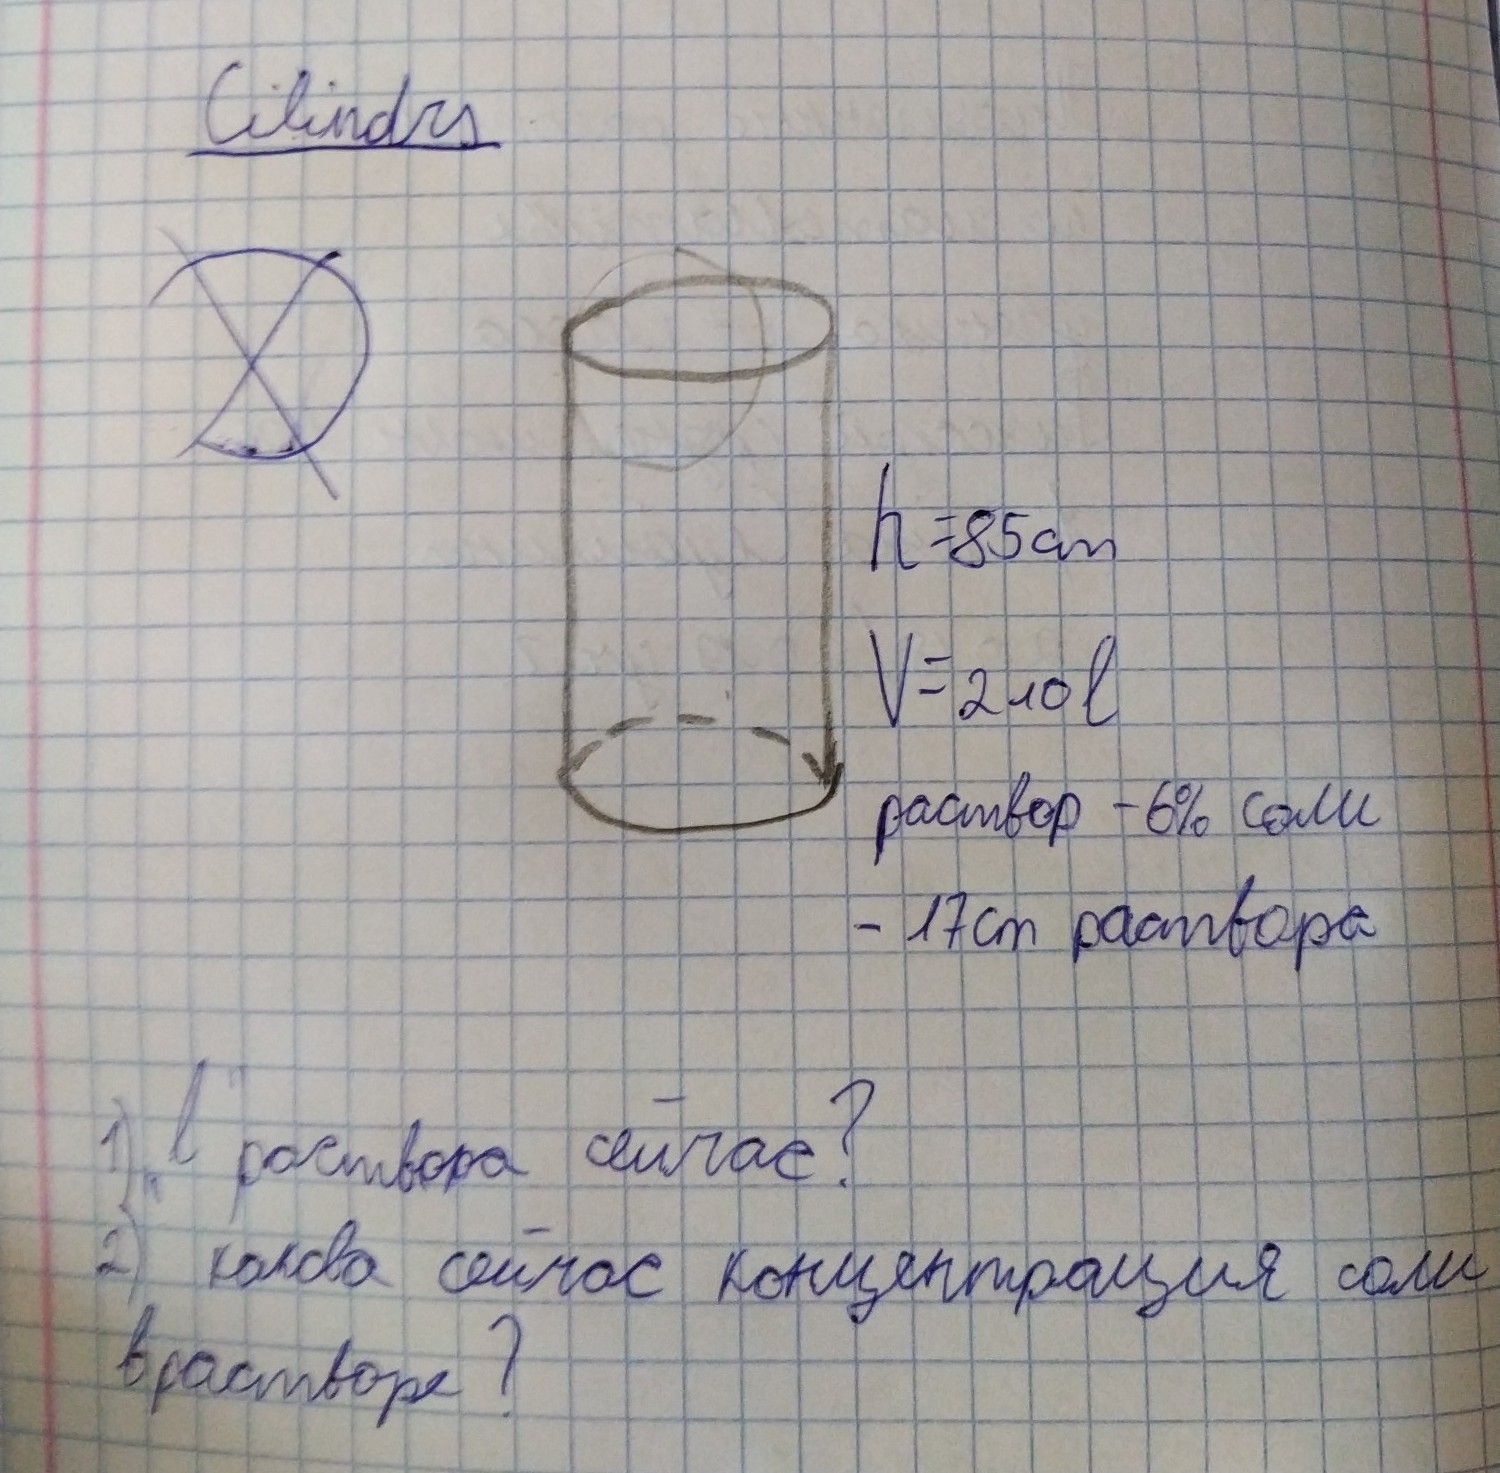 Cilindrs
h=85cm
V=210l
раствор - 6% соли
- 17cm раствора
1) l раствора сейчас?
2) какова сейчас концентрация соли
в растворе?